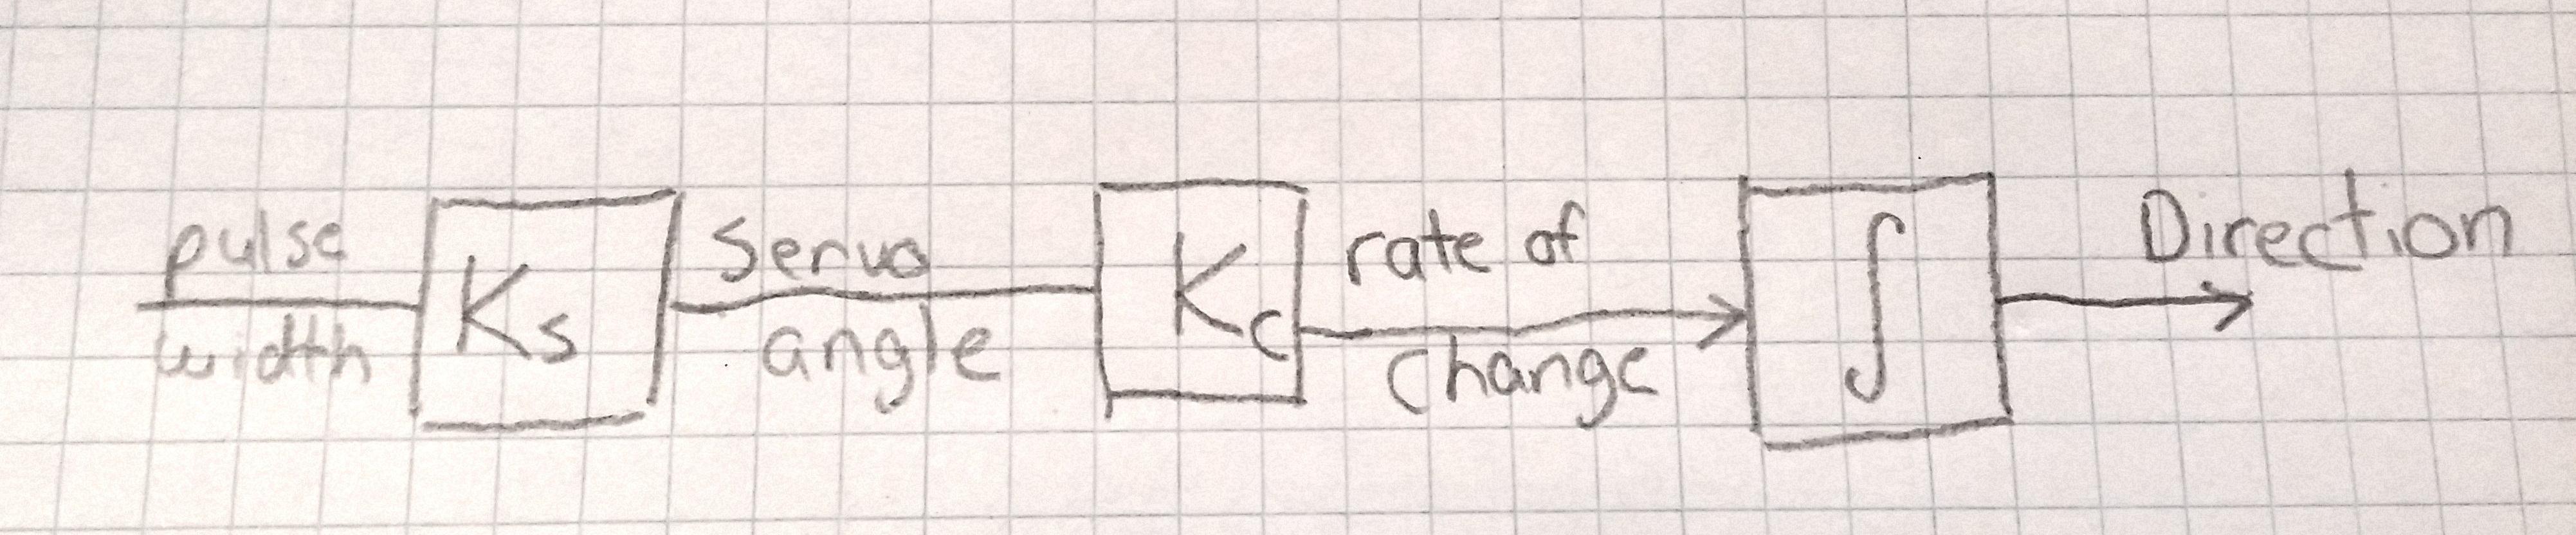 pulse
width
Ks
Servo
angle
Kc
rate of
change
∫
Direction